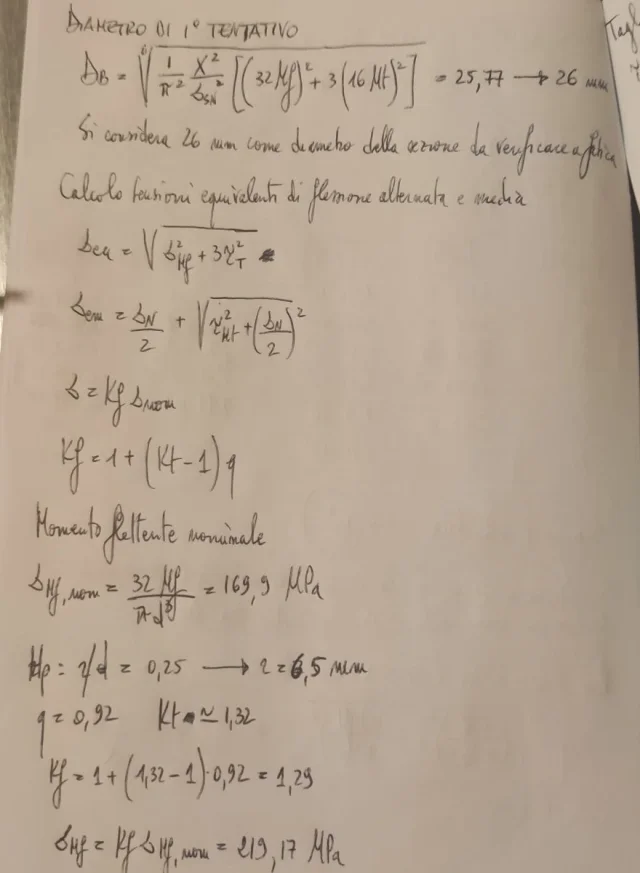 DIAMETRO DI 1° TENTATIVO
D_B = ⁶√(1/π² X²/σ²_SN [(32 Mf)² + 3(16 Mt)²]) = 25,77 → 26 mm
Si considera 26 mm come diametro della sezione da verificare a fatica
Calcolo tensioni equivalenti di flessione alternata e media
σea = √(σ²_Mf + 3τ²_T)
σem = σN/2 + √(τ²_Mt + (σN/2)²)
σ = Kf σnom
Kf = 1 + (Kt - 1) q
Momento flettente nominale
σMf, nom = 32 Mf / πd³ = 169,9 MPa
Hp: r/d = 0,25 → r = 6,5 mm
q = 0,92 Kt ≃ 1,32
Kf = 1 + (1,32 - 1) · 0,92 = 1,29
σMf = Kf σMf, nom = 219,17 MPa
Tagl